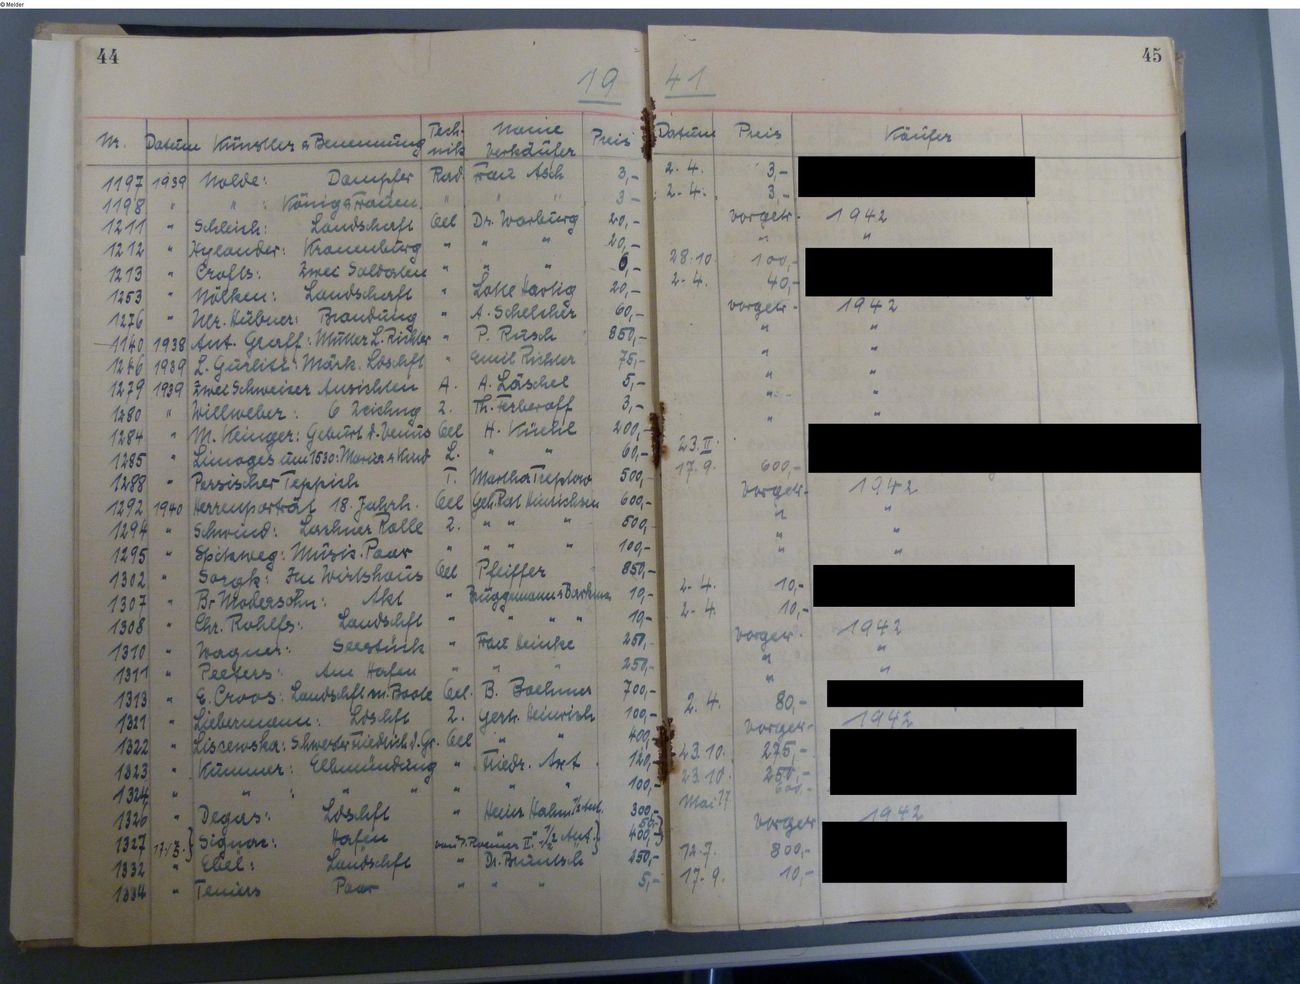 © Meider
44
45
19 41
Nr. Datum Künstler & Benennung Technik Name Verkäufer Preis Datum Preis Käufer
1197 1939 Nolde: Dampfer Rad. Frau Asch 3,- 2.4. 3,-
1198 " " : König & Frauen " " " 3,- 2.4. 3,-
1211 " Schleich: Landschaft Oel Dr. Warburg 20,- vorgetr. 1942
1212 " Hylander: Kranenburg " " " 20,- " "
1213 " Crofts: Zwei Soldaten " " " 6,- 28.10. 100,-
1253 " Nölken: Landschaft " Lotte Hartig 20,- 2.4. 40,-
1276 " Ulr. Hübner: Brandung " A. Schelcher 60,- vorgetr. 1942
1140 1938 Ant. Graff: Mutter L. Richter " P. Rusch 850,- " "
1246 1939 L. Gurlitt: Märk. Ldschft " Emil Richter 75,- " "
1279 1939 Zwei Schweizer Ansichten A. A. Läschel 5,- " "
1280 " Willweber: 6 Zeichng Z. 3,- " "
1284 " Geburt d. Venus Oel H. 200,- " "
1285 " Limoges um 1530: Maria & Kind L. " " 60,- 23.II.
1288 " Persischer Teppich T. Martha Treplow 500,- 17.9. 600,-
1292 1940 Herrenporträt 18. Jahrh. Oel Geh. Rat Hinrichsen 600,- vorgetr. 1942
1294 " Schwind: Lachner Rolle Z. " " " 500,- " "
1295 " Spitzweg: Musik. Paar " " " " 100,- " "
1302 " Sorgh: Im Wirtshaus Oel Pfeiffer 850,-
1307 " Br. Modersohn: Akt " Brüggemann & Barkma 10,- 2.4. 10,-
1308 " Chr. Rohlfs: Landschft " " " " 10,- 2.4. 10,-
1310 " Wagner: Seestück " Frau Heinke 250,- vorgetr. 1942
1311 " Peeters: Am Hafen " " " 250,- " "
1313 " E. Croos: Landschft m. Boote Oel. B. Boehmer 700,- "
1321 " Liebermann: Ldschft Z. Gertr. Heinrich 100,- 2.4. 80,-
1322 " Liscewska: Schwester Friedrich d. Gr. Oel " " 400,- vorgetr. 1942
1323 " Kummer: Elbmündung " Friedr. Axt 120,- 23.10. 275,-
1324 " " : " " " " 100,- 23.10. 250,-
1326 " Degas: Ldschft " Heinr. Hahn 1/2 Ant. 300,- Mai 600,-
1327 17.13. Signac: Hafen 1/2 Ant. 400,- vorgetr 1942
1332 " Ebel: Landschft " Dr. 250,- 12.7. 800,-
1334 " Teniers Paar " " " 5,- 17.9. 10,-